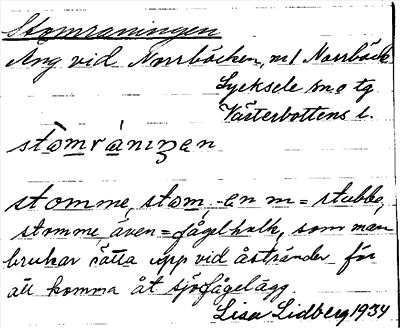 Stomraningen
Äng vid Norrbäcken, m/ Norrbäck
Lycksele sn o tg
Västerbottens l.
stòmrániŋen
stomme, stom, -en m = stubbe,
stomme, även = fågelholk, som man
brukar sätta upp vid åstränder för
att komma åt sjöfågelägg.
Lisa Lidberg 1934